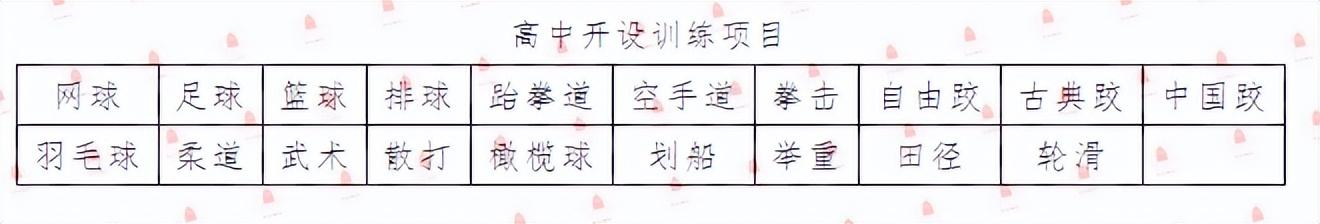 高中开设训练项目
网球 足球 篮球 排球 跆拳道 空手道 拳击 自由跤 古典跤 中国跤
羽毛球 柔道 武术 散打 橄榄球 划船 举重 田径 轮滑